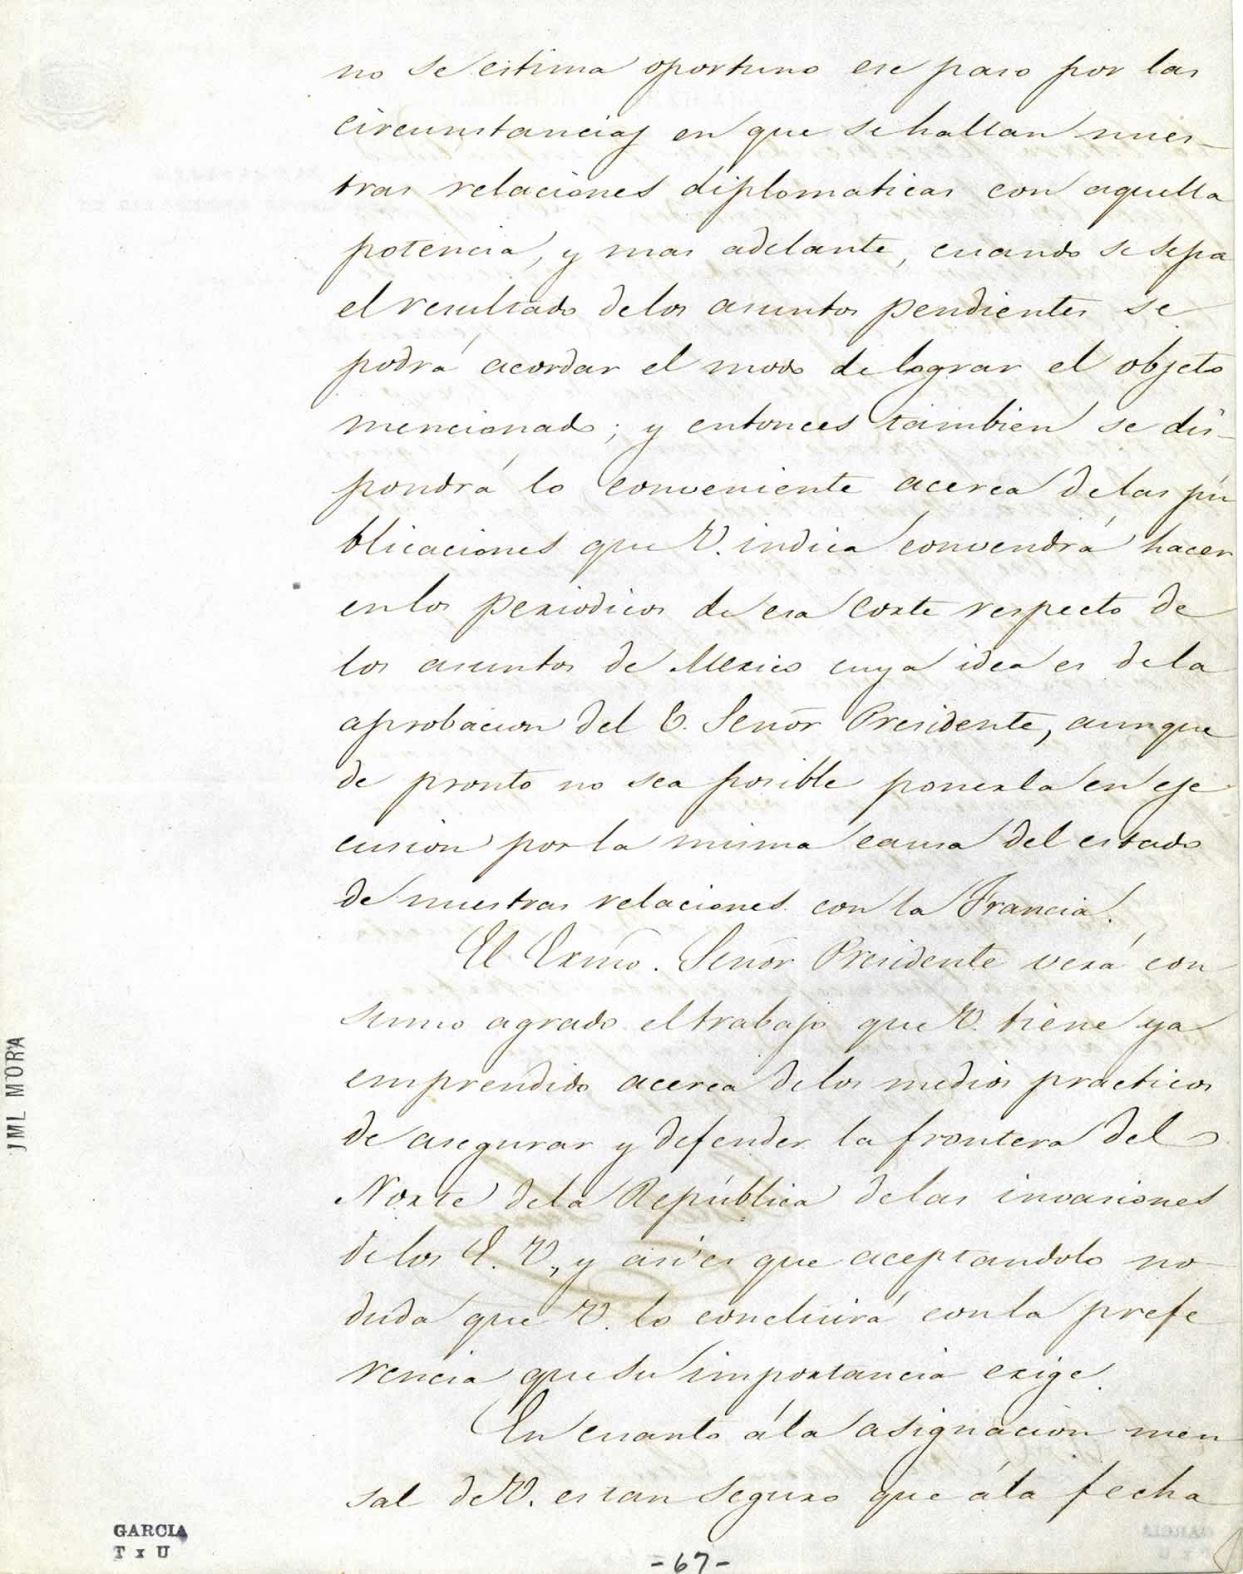 no se estima oportuno ese paso por las
circunstancias en que se hallan nues-
tras relaciones diplomaticas con aquella
potencia, y mas adelante, cuando se sepa
el resultado de los asuntos pendientes se
podrá acordar el modo de lograr el objeto
mencionado; y entonces tambien se dis-
pondrá lo conveniente acerca de las pu
blicaciones que V. indica convendrá hacer
en los periodicos de esa Corte respecto de
los asuntos de Mexico cuya idea es de la
aprobacion del E. Señor Presidente, aunque
de pronto no sea posible ponerla en eje
cusion por la misma causa del estado
de nuestras relaciones con la Francia.
El Exmo. Señor Presidente verá con
sumo agrado el trabajo que V. tiene ya
emprendido acerca de los medios practicos
de asegurar y defender la frontera del
Norte de la República de las invasiones
de los E. U., y asi es que aceptandolo no
duda que V. lo concluirá con la prefe
rencia que su importancia exige.
En cuanto á la asignacion men
sal de V. estan seguro que á la fecha
JML MORA
GARCIA
T x U
-67-